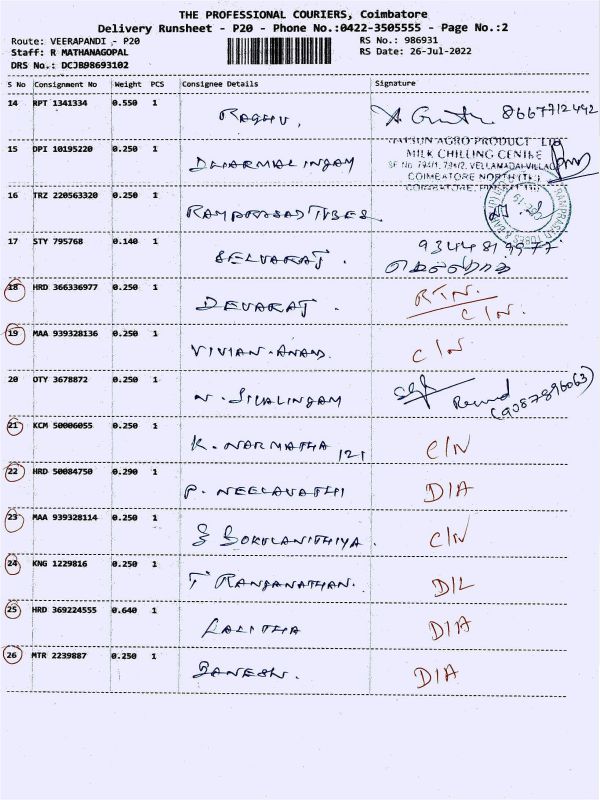 THE PROFESSIONAL COURIERS, Coimbatore
Delivery Runsheet - P20 - Phone No.:0422-3505555 - Page No.:2
Route: VEERAPANDI - P20
Staff: R MATHANAGOPAL
DRS No.: DCJB98693102
RS No.: 986931
RS Date: 26-Jul-2022
S No Consignment No Weight PCS Consignee Details Signature
14 RPT 1341334 0.550 1 RAGHU. 8667712442
15 DPI 10195220 0.250 1 DHARMALINGAM
AGRO PRODUCT LTD
MILK CHILLING CENTRE
SF No 794/1, 794/2, VELLAMADAI VILLAGE
COIMBATORE NORTH (TK)
16 TRZ 220563320 0.250 1 RAMPRASAD TUBES
RAMPRASAD TUBES
17 STY 795768 0.140 1 SELVARAJ. 9344819977
18 HRD 366336977 0.250 1 DEVARAJ. RTN.
C/N.
19 MAA 939328136 0.250 1 VIVIAN-ANAND. C/N
20 OTY 3678872 0.250 1 N. SIVALINGAM (9087896063)
21 KCM 50006055 0.250 1 K. NARMATHA 121 C/N
22 HRD 50084750 0.290 1 P. NEELAVATHI D/A
23 MAA 939328114 0.250 1 S GOKULANITHIYA. C/N
24 KNG 1229816 0.250 1 T RANGANATHAN. D/L
25 HRD 369224555 0.640 1 LALITHA D/A
26 MTR 2239887 0.250 1 GANESH. D/A